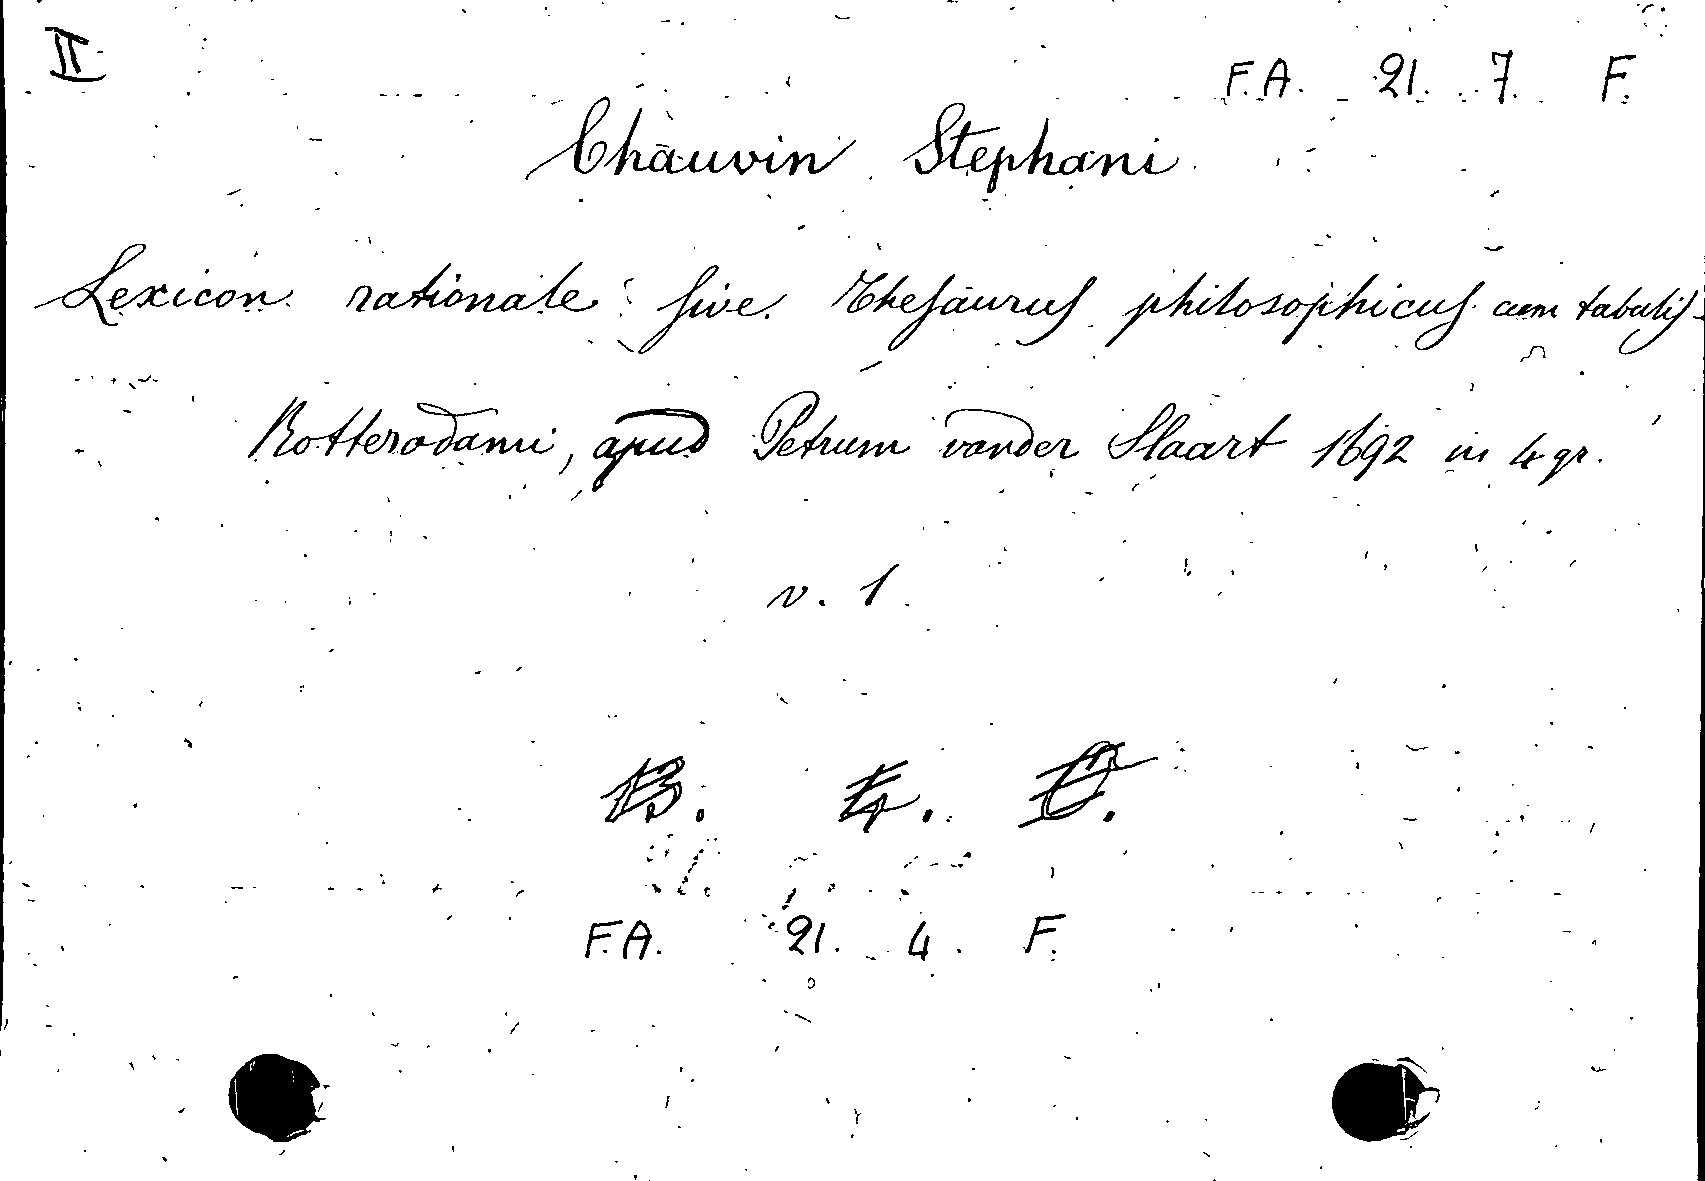 II
F.A. 21. 7. F.
Chauvin Stephani
Lexicon rationale sive Thesaurus philosophicus cum tabulis
Rotterodami, apud Petrum vander Slaart 1692 in 4 gr.
v. 1
B. 4.
F.A. 21. 4. F.